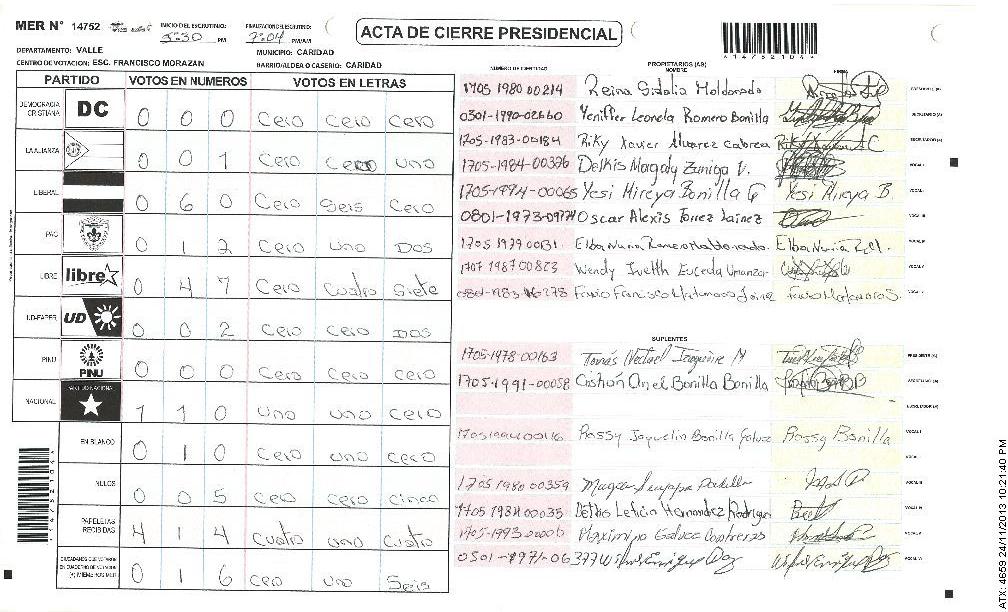 MER N° 14752
INICIO DEL ESCRUTINIO:
5:30 PM
FINALIZACION ESCRUTINIO:
7:04 PM/AM
ACTA DE CIERRE PRESIDENCIAL
*14752104*
DEPARTAMENTO: VALLE
MUNICIPIO: CARIDAD
CENTRO DE VOTACION: ESC. FRANCISCO MORAZAN
BARRIO/ALDEA O CASERIO: CARIDAD
PARTIDO VOTOS EN NUMEROS VOTOS EN LETRAS
DEMOCRACIA CRISTIANA DC 0 0 0 Cero Cero Cero
LA ALIANZA 0 0 1 Cero Cero Uno
LIBERAL 0 6 0 Cero Seis Cero
PAC 0 1 2 Cero Uno Dos
LIBRE libre 0 4 7 Cero Cuatro Siete
UD-FAPER UD 0 0 2 Cero Cero Dos
PINU PINU 0 0 0 Cero Cero Cero
NACIONAL PARTIDO NACIONAL 1 1 0 Uno Uno Cero
EN BLANCO 0 1 0 Cero Uno Cero
NULOS 0 0 5 Cero Cero Cinco
PAPELETAS RECIBIDAS 4 1 4 Cuatro Uno Cuatro
CIUDADANOS QUE VOTARON EN CUADERNO DE VOTACION (+) MIEMBROS MER 0 1 6 Cero Uno Seis
NUMERO DE IDENTIDAD PROPIETARIOS (AS) NOMBRE FIRMA
1705 1980 00214 Reina Maldonado PRESIDENTE (A)
0301-1990-02660 Yeniffer Leonela Romero Bonilla SECRETARIO (A)
1705-1983-00184 Riky Xavier Alvarez Cabrera ESCRUTADOR (A)
1705-1984-00326 Delkis Magaly Zuniga V. VOCAL I
1705-1994-00065 Yesi Mireya Bonilla G Yesi Mireya B. VOCAL II
0801-1973- Oscar Alexis Torrez Lainez VOCAL III
1705 1979 00131 Elba Nuria Romero Maldonado. Elba Nuria VOCAL IV
1707 1987 00823 Wendy Iveth Euceda Umanzor VOCAL V
Francisco Matamoros Matamoros S.
SUPLENTES
1705-1978-00163 Tomás Izaguirre M PRESIDENTE (A)
1705-1991-00058 Bonilla Bonilla SECRETARIO (A)
ESCRUTADOR (A)
Rossy Joquelin Bonilla Rossy Bonilla VOCAL I
VOCAL II
1705 1980 00359 VOCAL III
00035 Leticia Hernandez Rodriguez VOCAL IV
1705-1993-00006 Maximino Contreras VOCAL V
0501-1971-06377 Wilfred Enrique Diaz
*14752104*
ATX: 4659 24/11/2013 10:21:40 PM